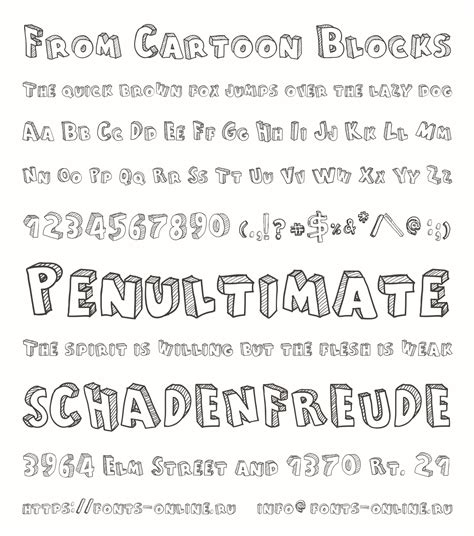 From Cartoon Blocks
The quick brown fox jumps over the lazy dog
Aa Bb Cc Dd Ee Ff Gg Hh Ii Jj Kk Ll Mm
Nn Oo Pp Qq Rr Ss Tt Uu Vv Ww Xx Yy Zz
1234567890 (.,!?+$%&*/\@:;)
Penultimate
The spirit is willing but the flesh is weak
SCHADENFREUDE
3964 Elm Street and 1370 Rt. 21
https://fonts-online.ru info@fonts-online.ru